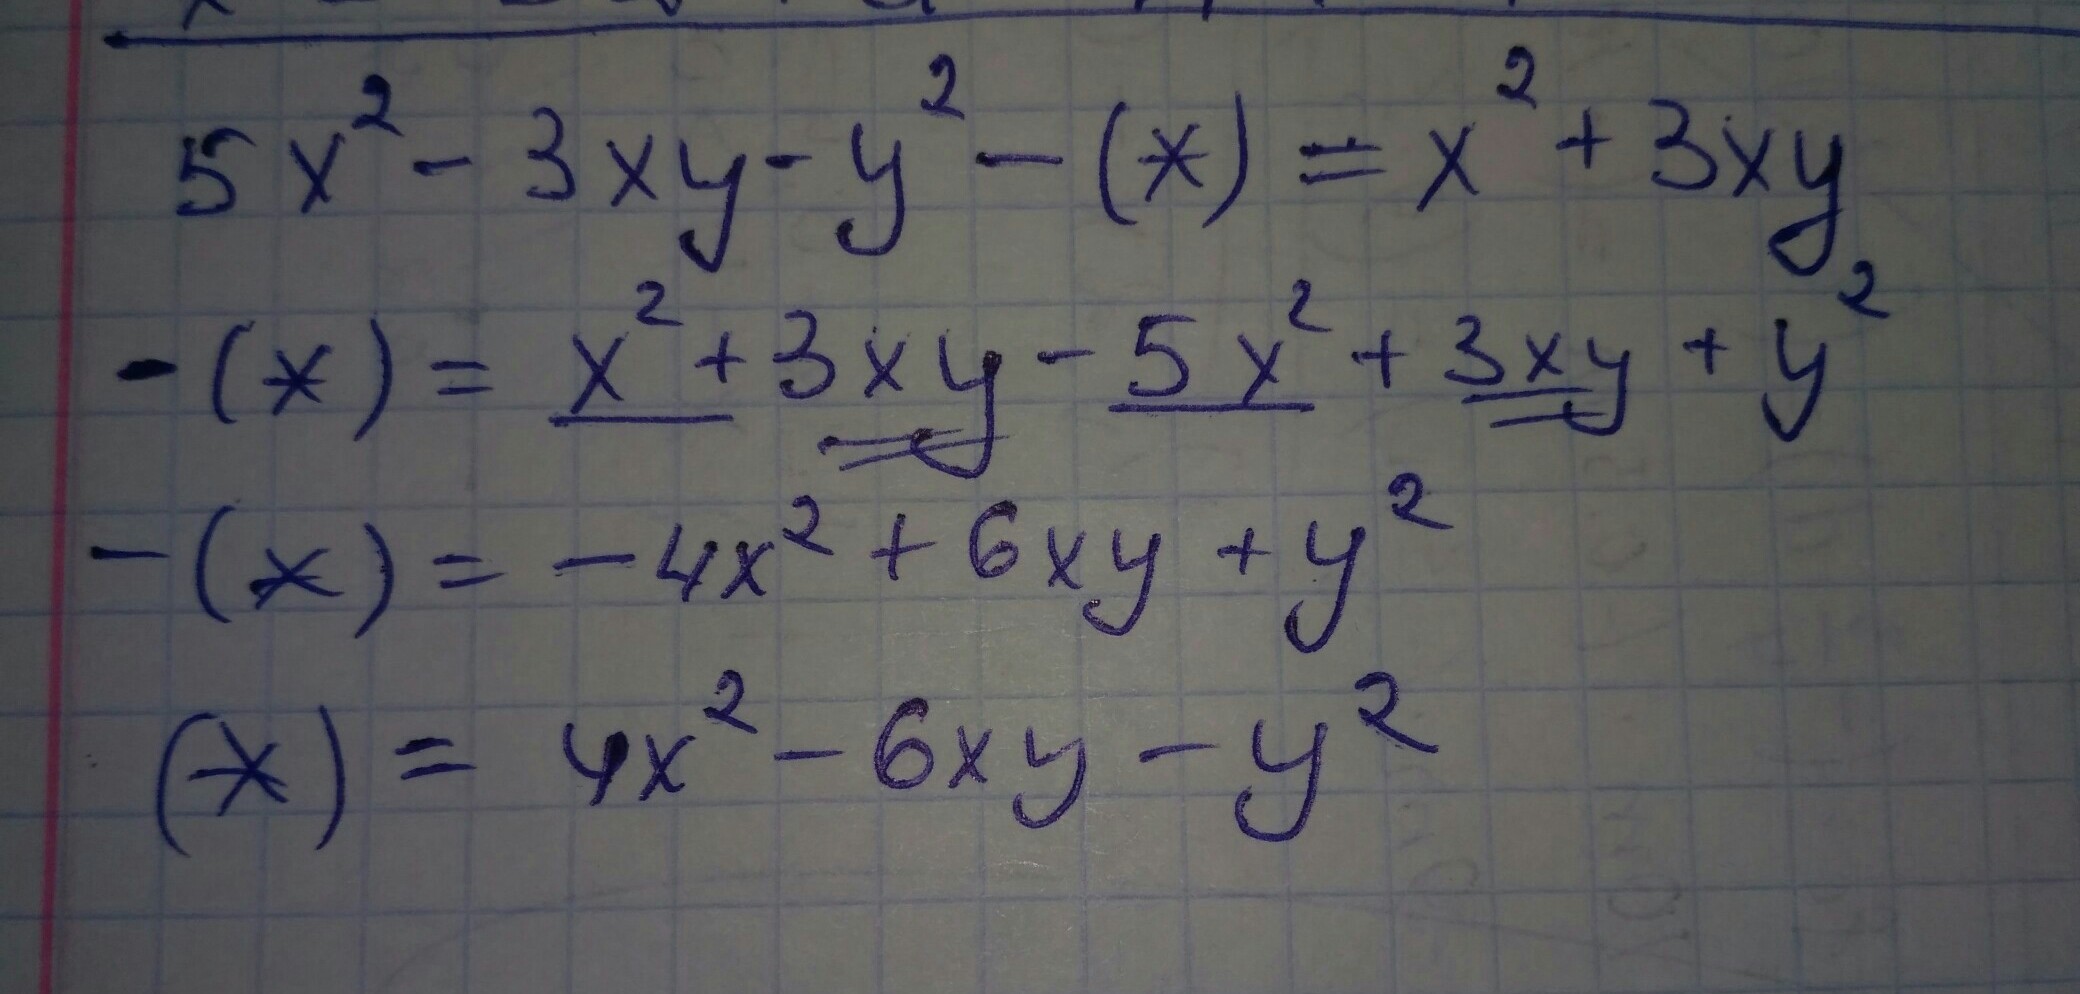 5x² - 3xy - y² - (*) = x² + 3xy
-(*) = x² + 3xy - 5x² + 3xy + y²
-(*) = -4x² + 6xy + y²
(*) = 4x² - 6xy - y²